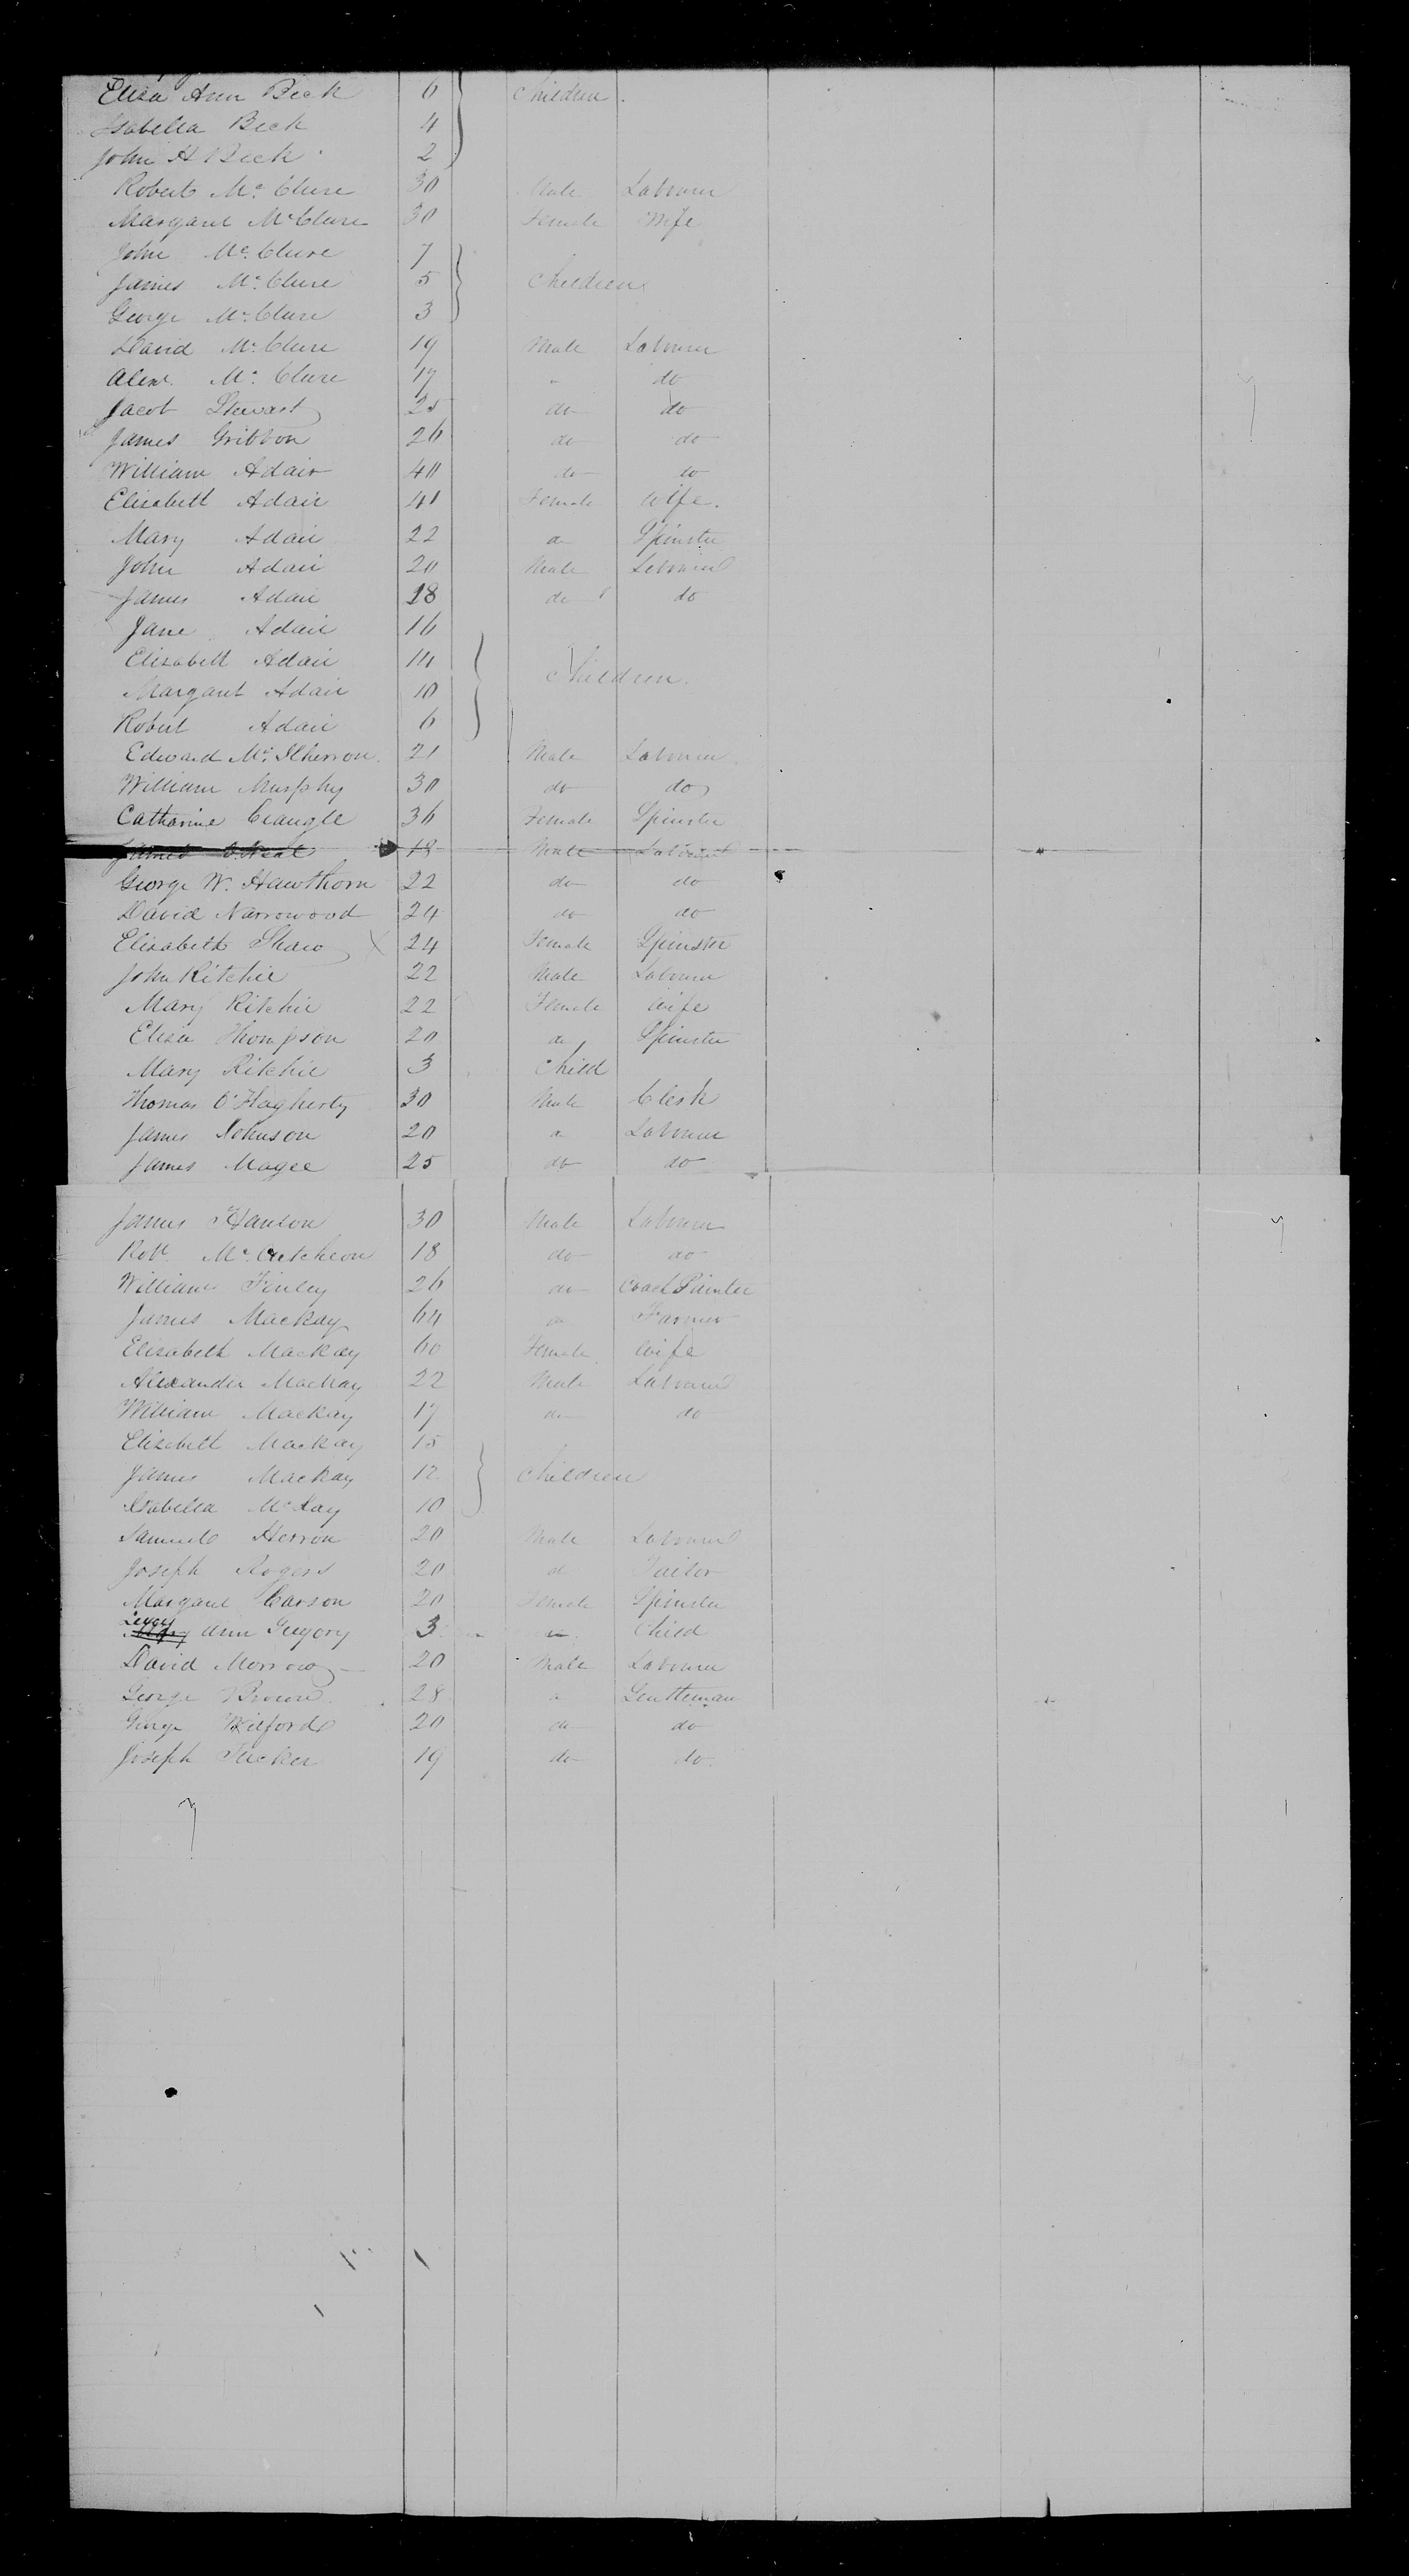 Eliza Ann Beck 6 Children
Isabella Beck 4
John H Beck 2
Robert Mc. Clure 30 Male Labourer
Margaret McClure 30 Female Wife
John Mc. Clure 7
James Mc. Clure 5 Children
George Mc. Clure 3
David Mc. Clure 19 Male Labourer
Alexr. Mc. Clure 17 " do
Jacob Stewart 25 do do
James Gribbon 26 do do
William Adair 40 do do
Elisabeth Adair 41 Female Wife.
Mary Adair 22 do Spinster
John Adair 20 Male Labourer
James Adair 18 do do
Jane Adair 16
Elizabeth Adair 14 Children.
Margaret Adair 10
Robert Adair 6
Edward Mc. Ilherron 21 Male Labourer
William Murphy 30 do do
Catharine Creangle 36 Female Spinster
James O'Neal 18 Male Labourer
George W. Hawthorn 22 do do
David Narrowood 24 do do
Elisabeth Shaw X 24 Female Spinster
John Ritchie 22 Male Labourer
Mary Ritchie 22 Female Wife
Eliza Thompson 20 do Spinster
Mary Ritchie 3 Child
Thomas O'Hagherty 30 Male Clerk
James Johnson 20 do Labourer
James Magee 25 do do
James Hanlon 30 Male Labourer
Robt. Mc. Cutcheon 18 do do
William Finley 26 do Coach Painter
James Mackay 64 do Farmer
Elisabeth Mackay 60 Female Wife
Alexander Mackay 22 Male Labourer
William Mackay 17 do do
Elizabeth Mackay 15
James Mackay 12 Children
Isabella McKay 10
Samuel Herron 20 Male Labourer
Joseph Rogers 20 do Tailor
Margaret Carson 20 Female Spinster
Ann Gregory 3 do Child
David Morrow 20 Male Labourer
George Brown 28 do Gentleman
George Wilford 20 do do
Joseph Tucker 19 do do